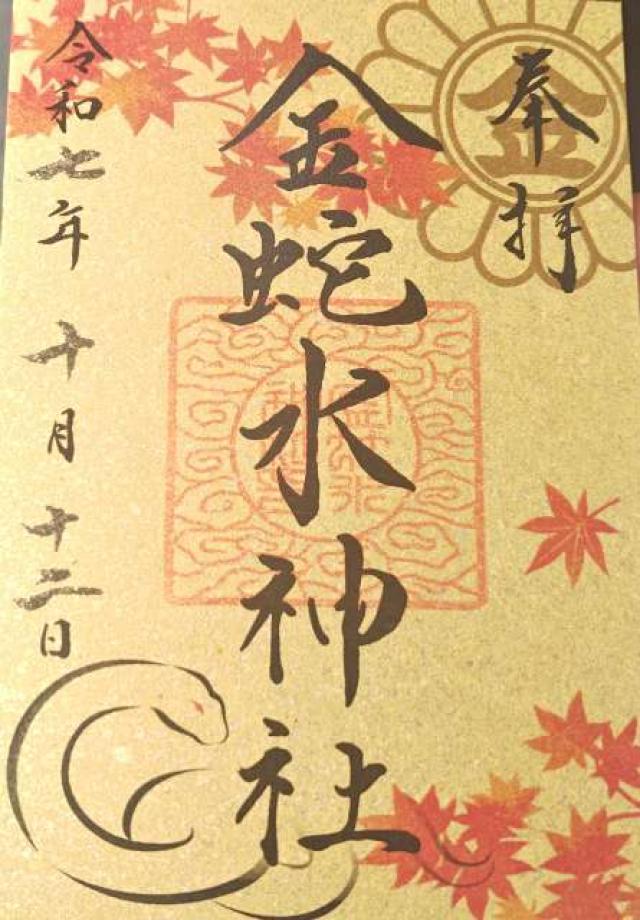 奉拝
金
金蛇水神社
令和七年十月十二日